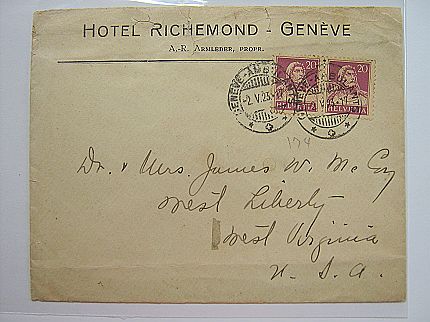 HOTEL RICHEMOND - GENÈVE
A.-R. ARMLEDER, PROPR.
20 20
HELVETIA HELVETIA
-2.V.23
174
Dr. & Mrs. James W. McCoy
West Liberty
West Virginia
U. S. A.